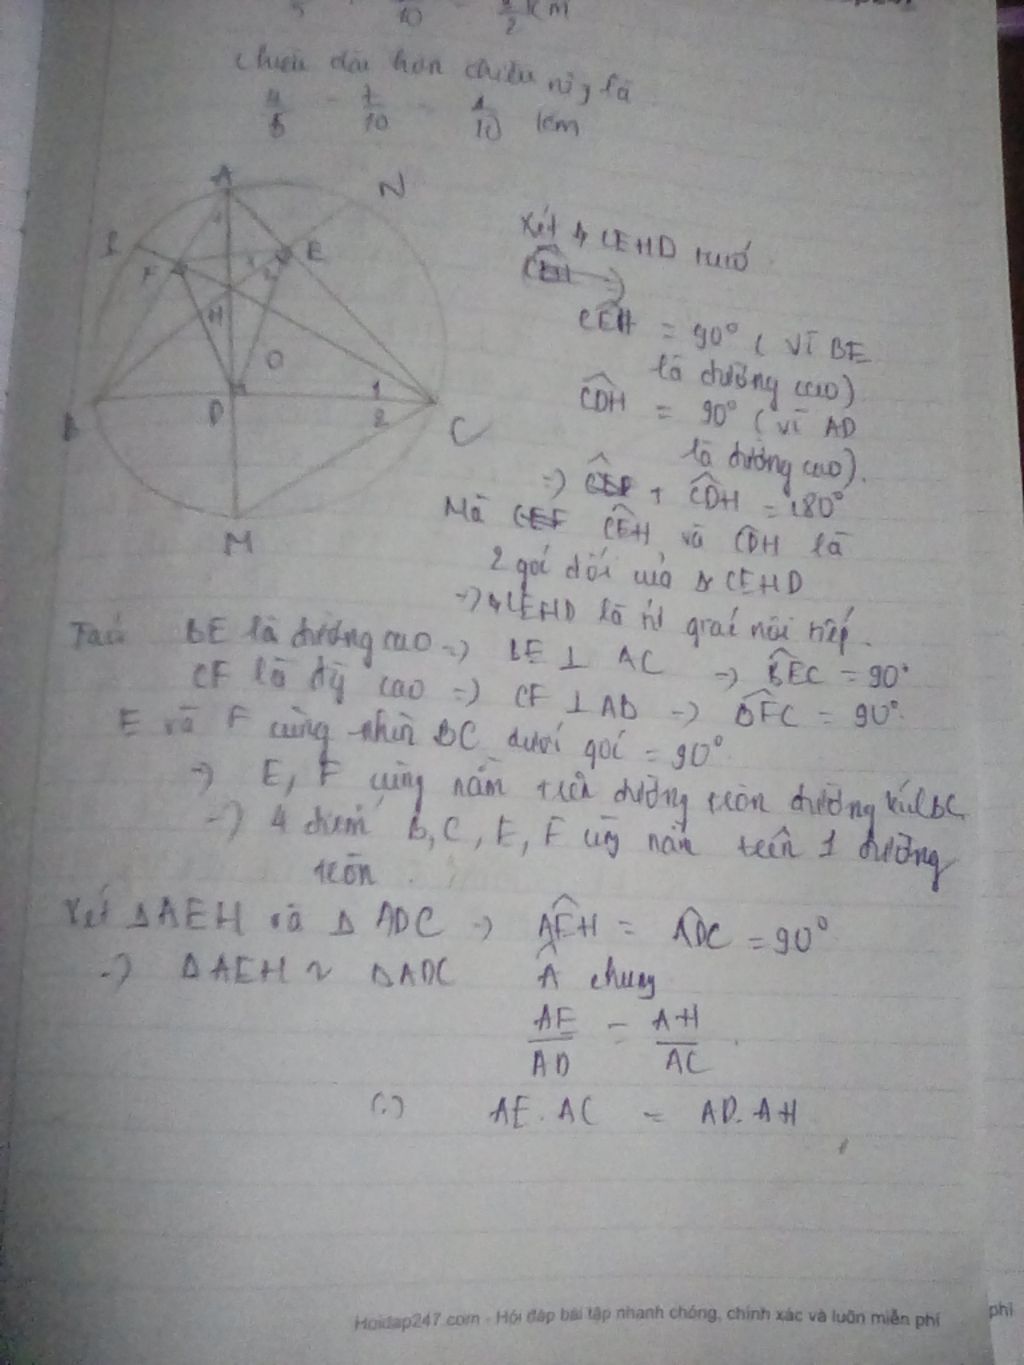 10
2 km
chiều dài hơn chiều này là
4/5 - 7/10 = 1/10 km
A
N
I
F
E
1
2
H
O
B
D
1
2
C
M
Xét 4 CEHD
CEH
=)
CEH = 90° ( vì BE
là đường cao)
CDH = 90° ( vì AD
là đường cao).
=) + CDH = 180°
Mà CEH và CDH là
2 góc đối của CEHD
=) CEHD là tứ giác nội tiếp.
BE là đường cao =) BE ⊥ AC =) BEC = 90°
CF là đg cao =) CF ⊥ AB =) BFC = 90°.
E và F cùng nhìn BC dưới góc = 90°.
=) E, F cùng nằm trên đường tròn đường kính BC
=) 4 điểm B, C, E, F cùng nằm trên 1 đường
tròn.
Xét ΔAEH và Δ ADC =) AEH = ADC = 90°
=) ΔAEH ~ ΔADC A chung
AE/AD = AH/AC.
(=) AE. AC = AD. AH
Hoidap247.com - Hỏi đáp bài tập nhanh chóng, chính xác và luôn miễn phí
phí